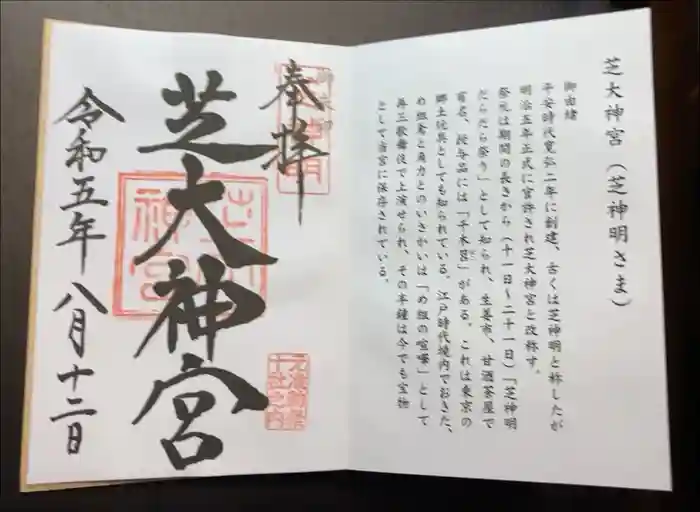 芝大神宮（芝神明さま）
御由緒
平安時代寛弘二年に創建、古くは芝神明と称したが
明治五年正式に官許され芝大神宮と改称す。
祭礼は期間の長きから（十一日～二十一日）「芝神明
だらだら祭り」として知られ、生姜市、甘酒茶屋で
有名、授与品には「千木筥」がある。これは東京の
郷土玩具としても知られている。江戸時代境内でおきた、
め組鳶と角力とのいさかいは「め組の喧嘩」として
再三歌舞伎で上演せられ、その半鐘は今でも宝物
として当宮に保存されている。
奉拝
芝大神宮
令和五年八月十二日
元准勅祭
十社之内